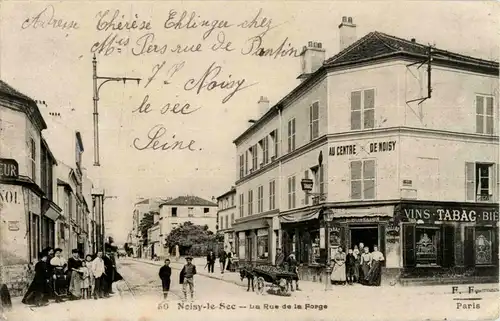 Adresse Thérèse Ehlinger chez
Mis Pers rue de Pantin
Noisy
le sec
Seine.
AU CENTRE DE NOISY
VINS - TABAC - BIÈ
EUR
NOL
50 NOISY-LE-SEC — LA RUE DE LA FORGE
E. F.
Paris